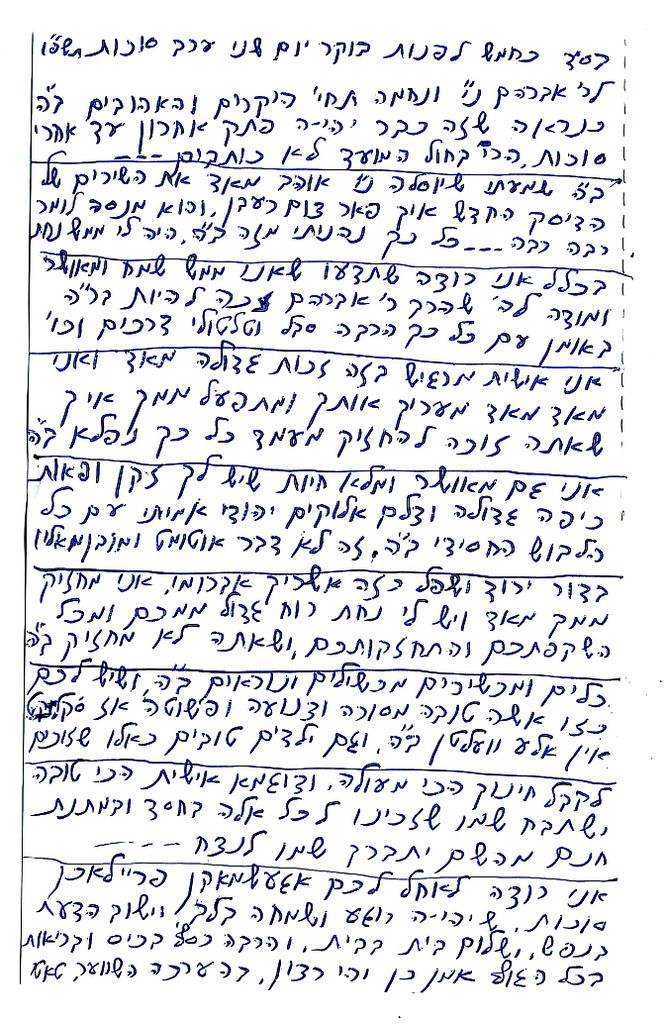 בסד כחמש לפנות בוקר יום שני ערב סוכות תשפ"ו
לר' אברהם ני"ו ונחמה תחי' היקרים והאהובים ב"ה
כנראה שזה כבר יהי-ה פתק אחרון עד אחרי
סוכות, הרי בחול המועד לא כותבים ----
ב"ה שמעתי שיוסלה ני"ו אוהב מאד את השירים של
הדיסק החדש איך פאר צום רעבן, והוא מנסה לומר
רבה רבה --- כל כך נהניתי מזה ב"ה, היה לי ממש נחת
בכלל אני רוצה שתדעו שאני ממש שמח ומאושר
ומודה לה' שהרך ר' אברהם זכה להיות בר"ה
באומן עם כל כך הרבה סבל וטלטולי דרכים וכו'
אני אישית מרגיש בזה זכות גדולה מאד ואני
מאד מאד מעריך אותך ומתפעל ממך איך
שאתה זוכה להחזיק מעמד כל כך נפלא ב"ה
אני גם מאושר ומלא חיות שיש לך זקן ופאות
כיפה גדולה וצלם אלוקים יהודי אמיתי עם כל
הלבוש החסידי ב"ה, זה לא דבר אוטומט ומובן מאליו
בדור ירוד ושפל כזה אשריך אברומי, אני מחזיק
ממך מאד ויש לי נחת רוח גדול ממכם ומכל
השקפתכם והתחזקותכם, ושאתה לא מחזיק ב"ה
כלים ומכשירים מכשילים ונוראים ב"ה, ושיש לכם
כזו אשה טובה מסורה וצנועה ופשוטה, אז
אין אלע וועלטן ב"ה, וגם ילדים טובים כאלו שזוכים
לקבל חינוך הכי מעולה, ודוגמא אישית הכי טובה
ישתבח שמו שזכינו לכל אלה בחסד ובמתנת
חנם מהשם יתברך שמו לנצח ----
אני רוצה לאחל לכם אגעשמאקן פריילאכן
סוכות, שיהי-ה רוגע ושמחה בלב, וישוב הדעת
בנפש, ושלום בית בבית, והרבה כסף בכיס ובריאות
בכל הגוף אמן כן יהי רצון, בהערכה השווער, טאטי